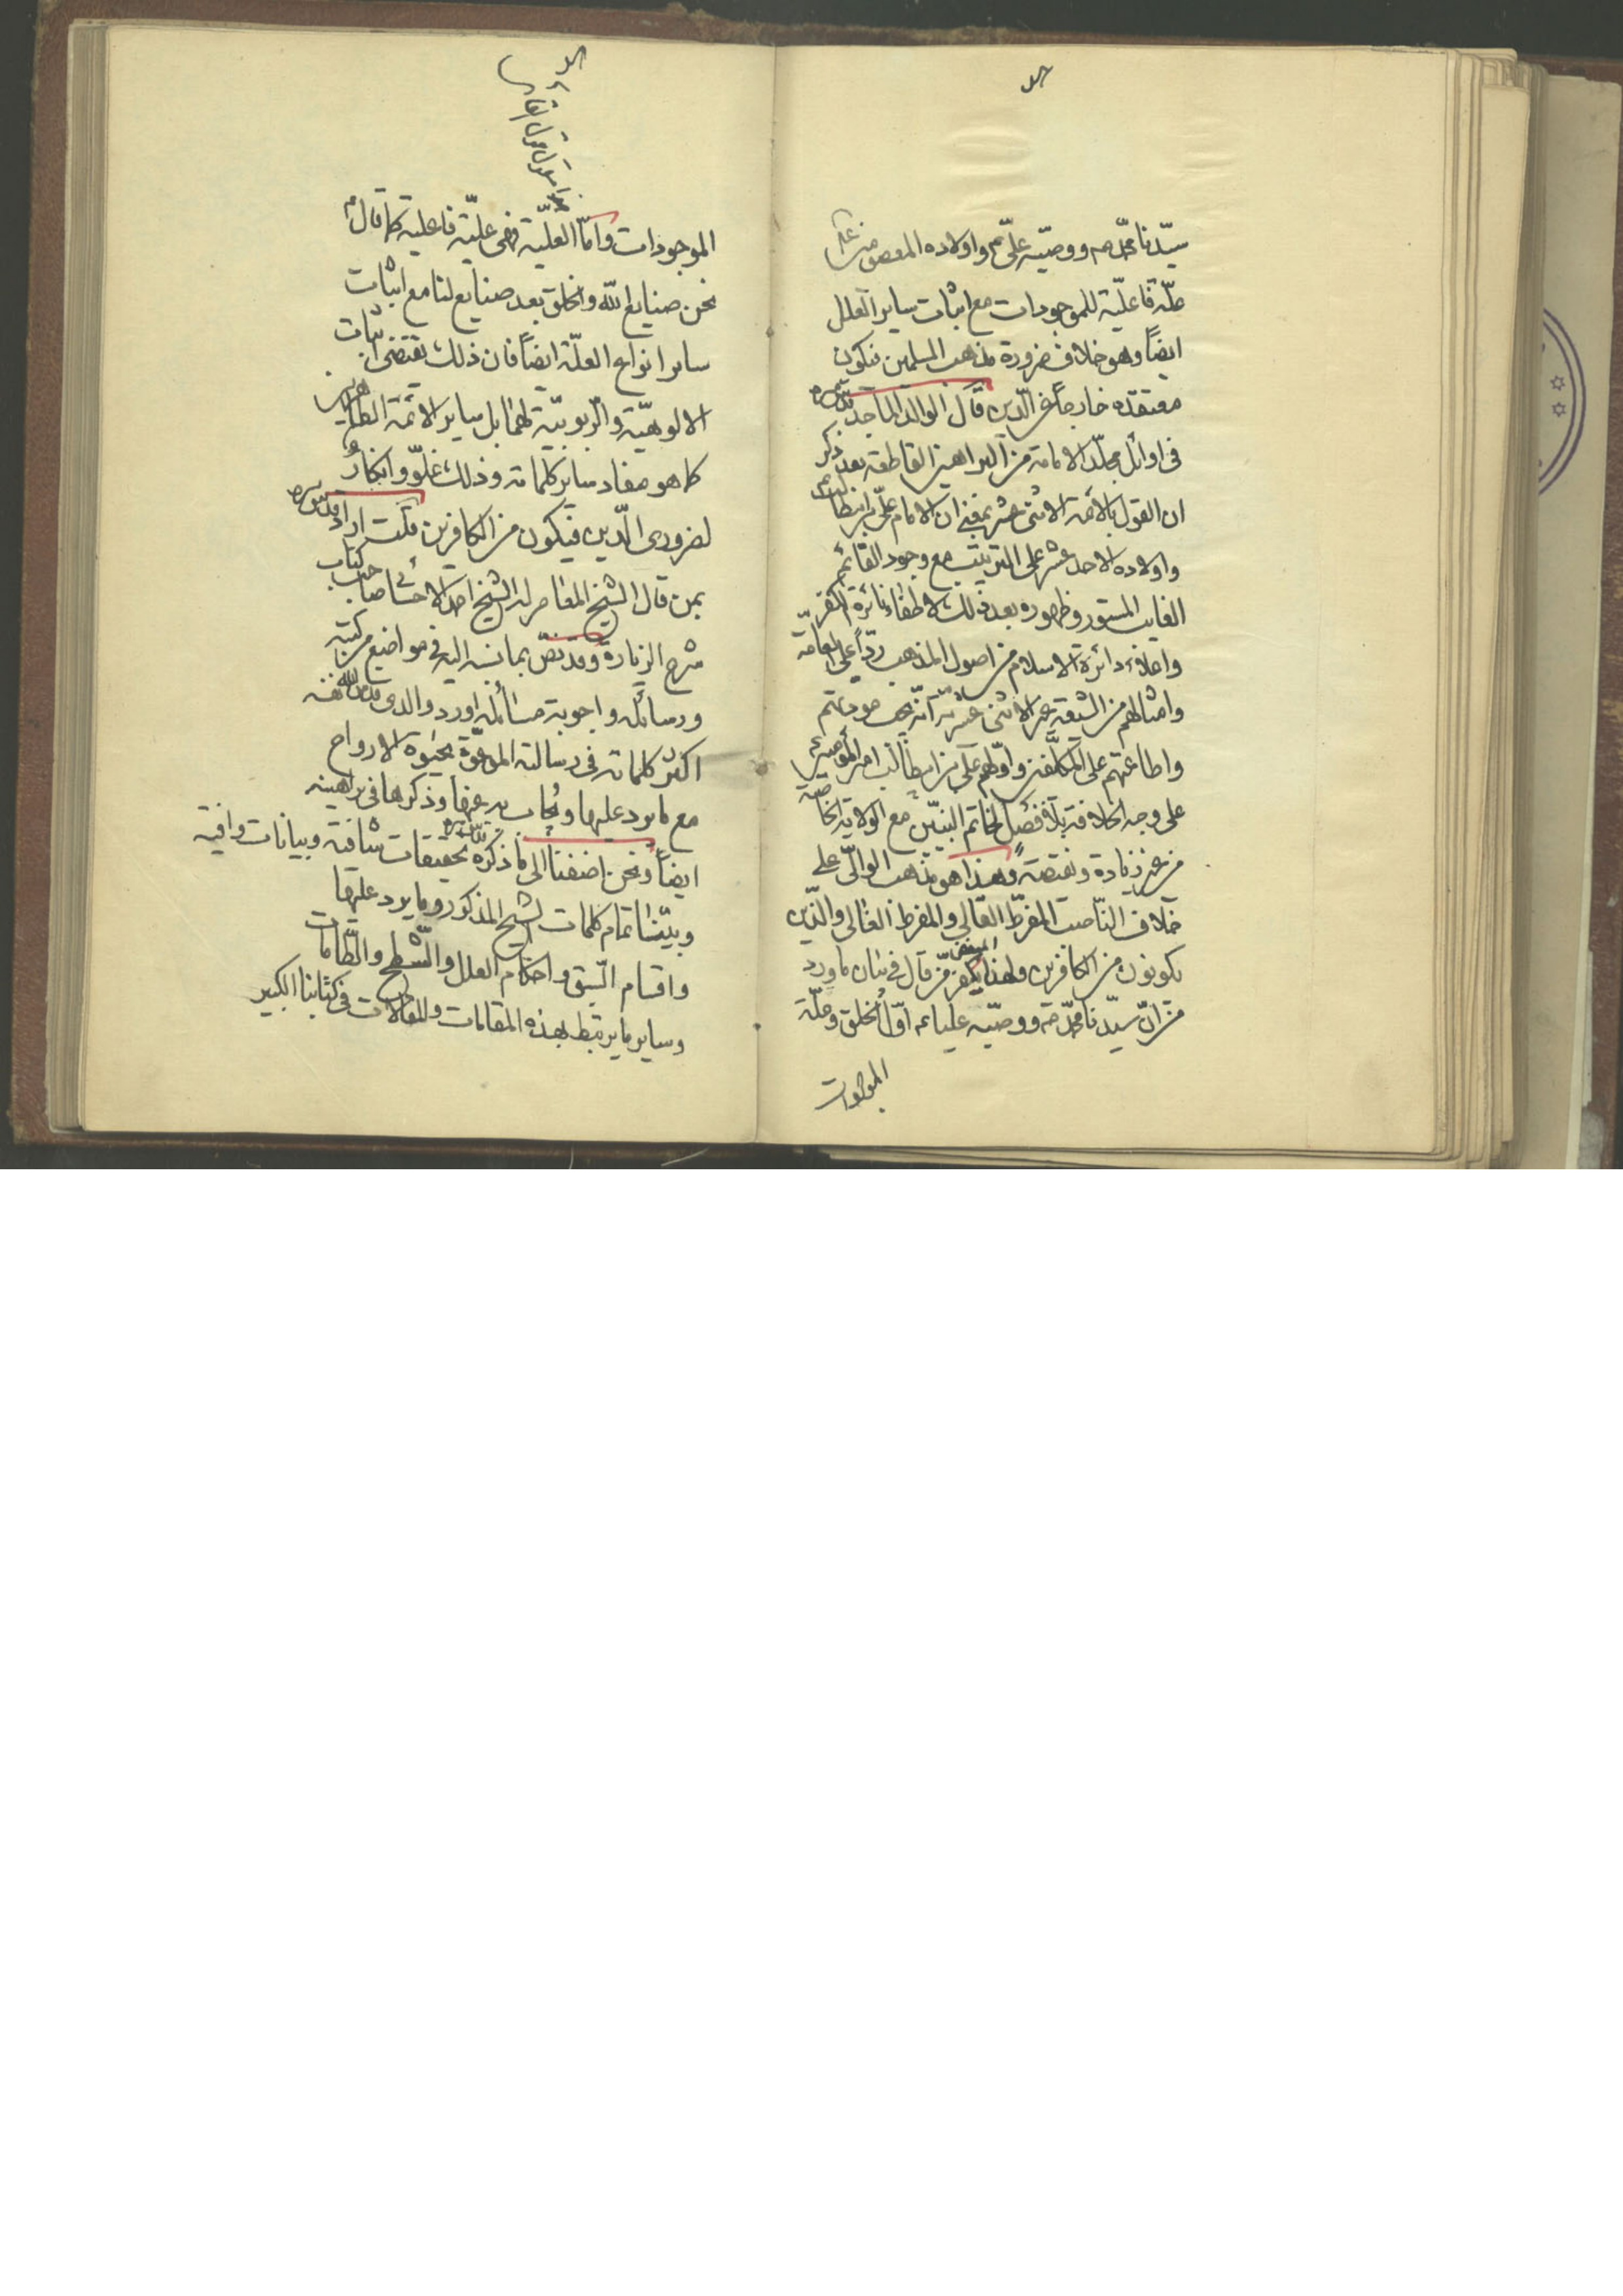 سيّدنا محمّد ص ووصيّه علىّ ع واولاده المعصومين ع
علّة فاعليّة للموجودات مع اثبات ساير العلل
ايضاً وهو خلاف ضرورة مذهب المسلمين فيكون
معتقده خارجاً عن الدّين قال الوالد الماجد قدّس سرّه
فى اوائل مجلّد الامامة من البراهين القاطعة بعد ذكر
ان القول بالائمة الاثنى عشر بمعنى ان الامام علىّ بن ابيطالب ع
واولاده الاحد عشر على الترتيب مع وجود القائم
الغايب المستور وظهوره بعد ذلك لاطفاء نائرة الكفر
واعلاء دائرة الاسلام من اصول المذهب ردّاً على العامّة
وامثالهم من الشيعة غير الاثنى عشرية انّه يجب مودتهم
واطاعتهم على المكلّفين واوّلهم على بن ابيطالب امير المؤمنين ع
على وجه الخلافة بلا فصل لخاتم النبيّين مع الولاية الخاصّة
من غير زيادة ونقيصة وهذا هو مذهب الوالى على
خلاف النّاصب المفرّط القالى والمفرط الغالى والذين
يكونون من الكافرين ولهذا يكفر من قال فى شان ما ورد
من انّ سيّدنا محمّد ص ووصيّه عليا ع اوّل الخلق وعلّة
الموجودات
الموجودات وامّا العلّية فهى علّية فاعلية كما قال ع
نحن صنايع اللّه والخلق بعد صنايع لنا مع اثبات
ساير انواع العلّة ايضاً فان ذلك يقتضى اثبات
الالوهيّة والرّبوبيّة لهما بل ساير الائمّة الطاهرين
كما هو مفاد ساير كلماته وذلك غلوّ وانكار
لضرورى الدّين فيكون من الكافرين قلت اراد قدّس سرّه
بمن قال الشيخ المعاصر له الشيخ احمد الاحسائى صاحب كتاب
شرح الزيارة وقد نصّ بما نسبه اليه فى مواضع من كتبه
ورسائله واجوبة مسائله اورد والدى قدّس اللّه نفسه
اكثر كلماته فى رسالته الموسومة بحيوة الارواح
مع ما يرد عليها ويُجاب به عنها وذكرها فى براهينه
ايضاً ونحن اضفنا الى ما ذكره قدّس سرّه تحقيقات شافية وبيانات وافية
وبيّنا تمام كلمات الشيخ المذكور وما يرد عليها
واقسام السّبق واحكام العلل والشّطح والطّامات
وساير ما يرتبط بهذه المقامات والمقالات فى كتابنا الكبير